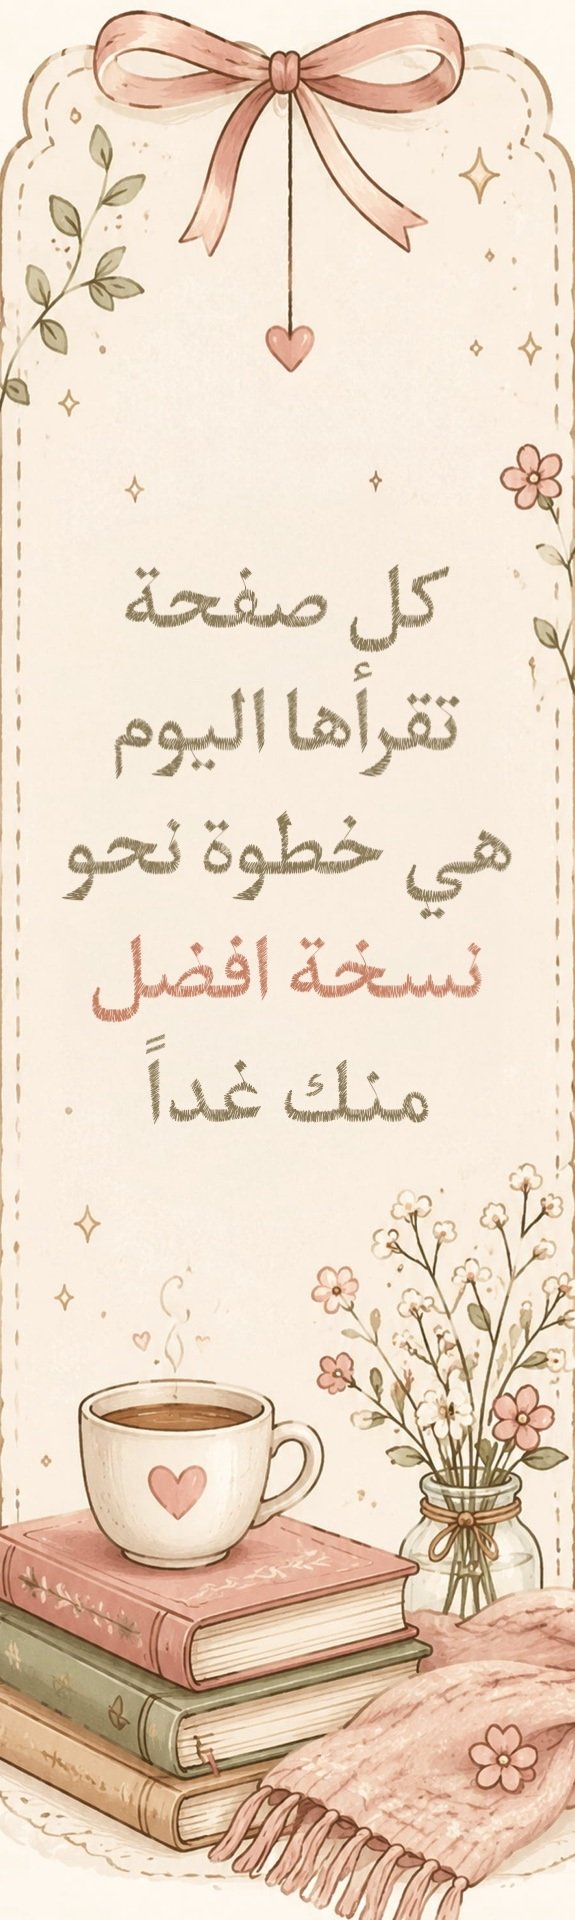 كل صفحة
تقرأها اليوم
هي خطوة نحو
نسخة افضل
منك غداً